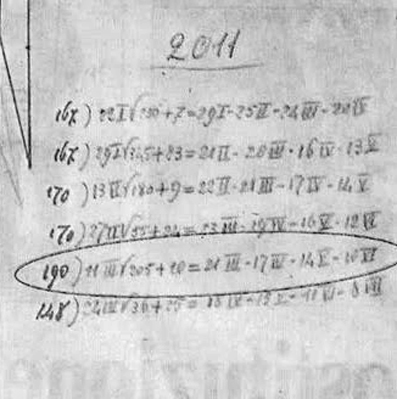 2011
167) 22I√250+7=29I-25II-24III-20IV
167) 29I√345+23=21II-20III-16IV-13V
170) 13II√180+9=22II-21III-17IV-14V
170) 27II√55+24=23III-19IV-16V-12VI
190) 11III√205+10=21III-17IV-14V-10VI
148) 24III√36+25=18IV-15V-11VI-8VII